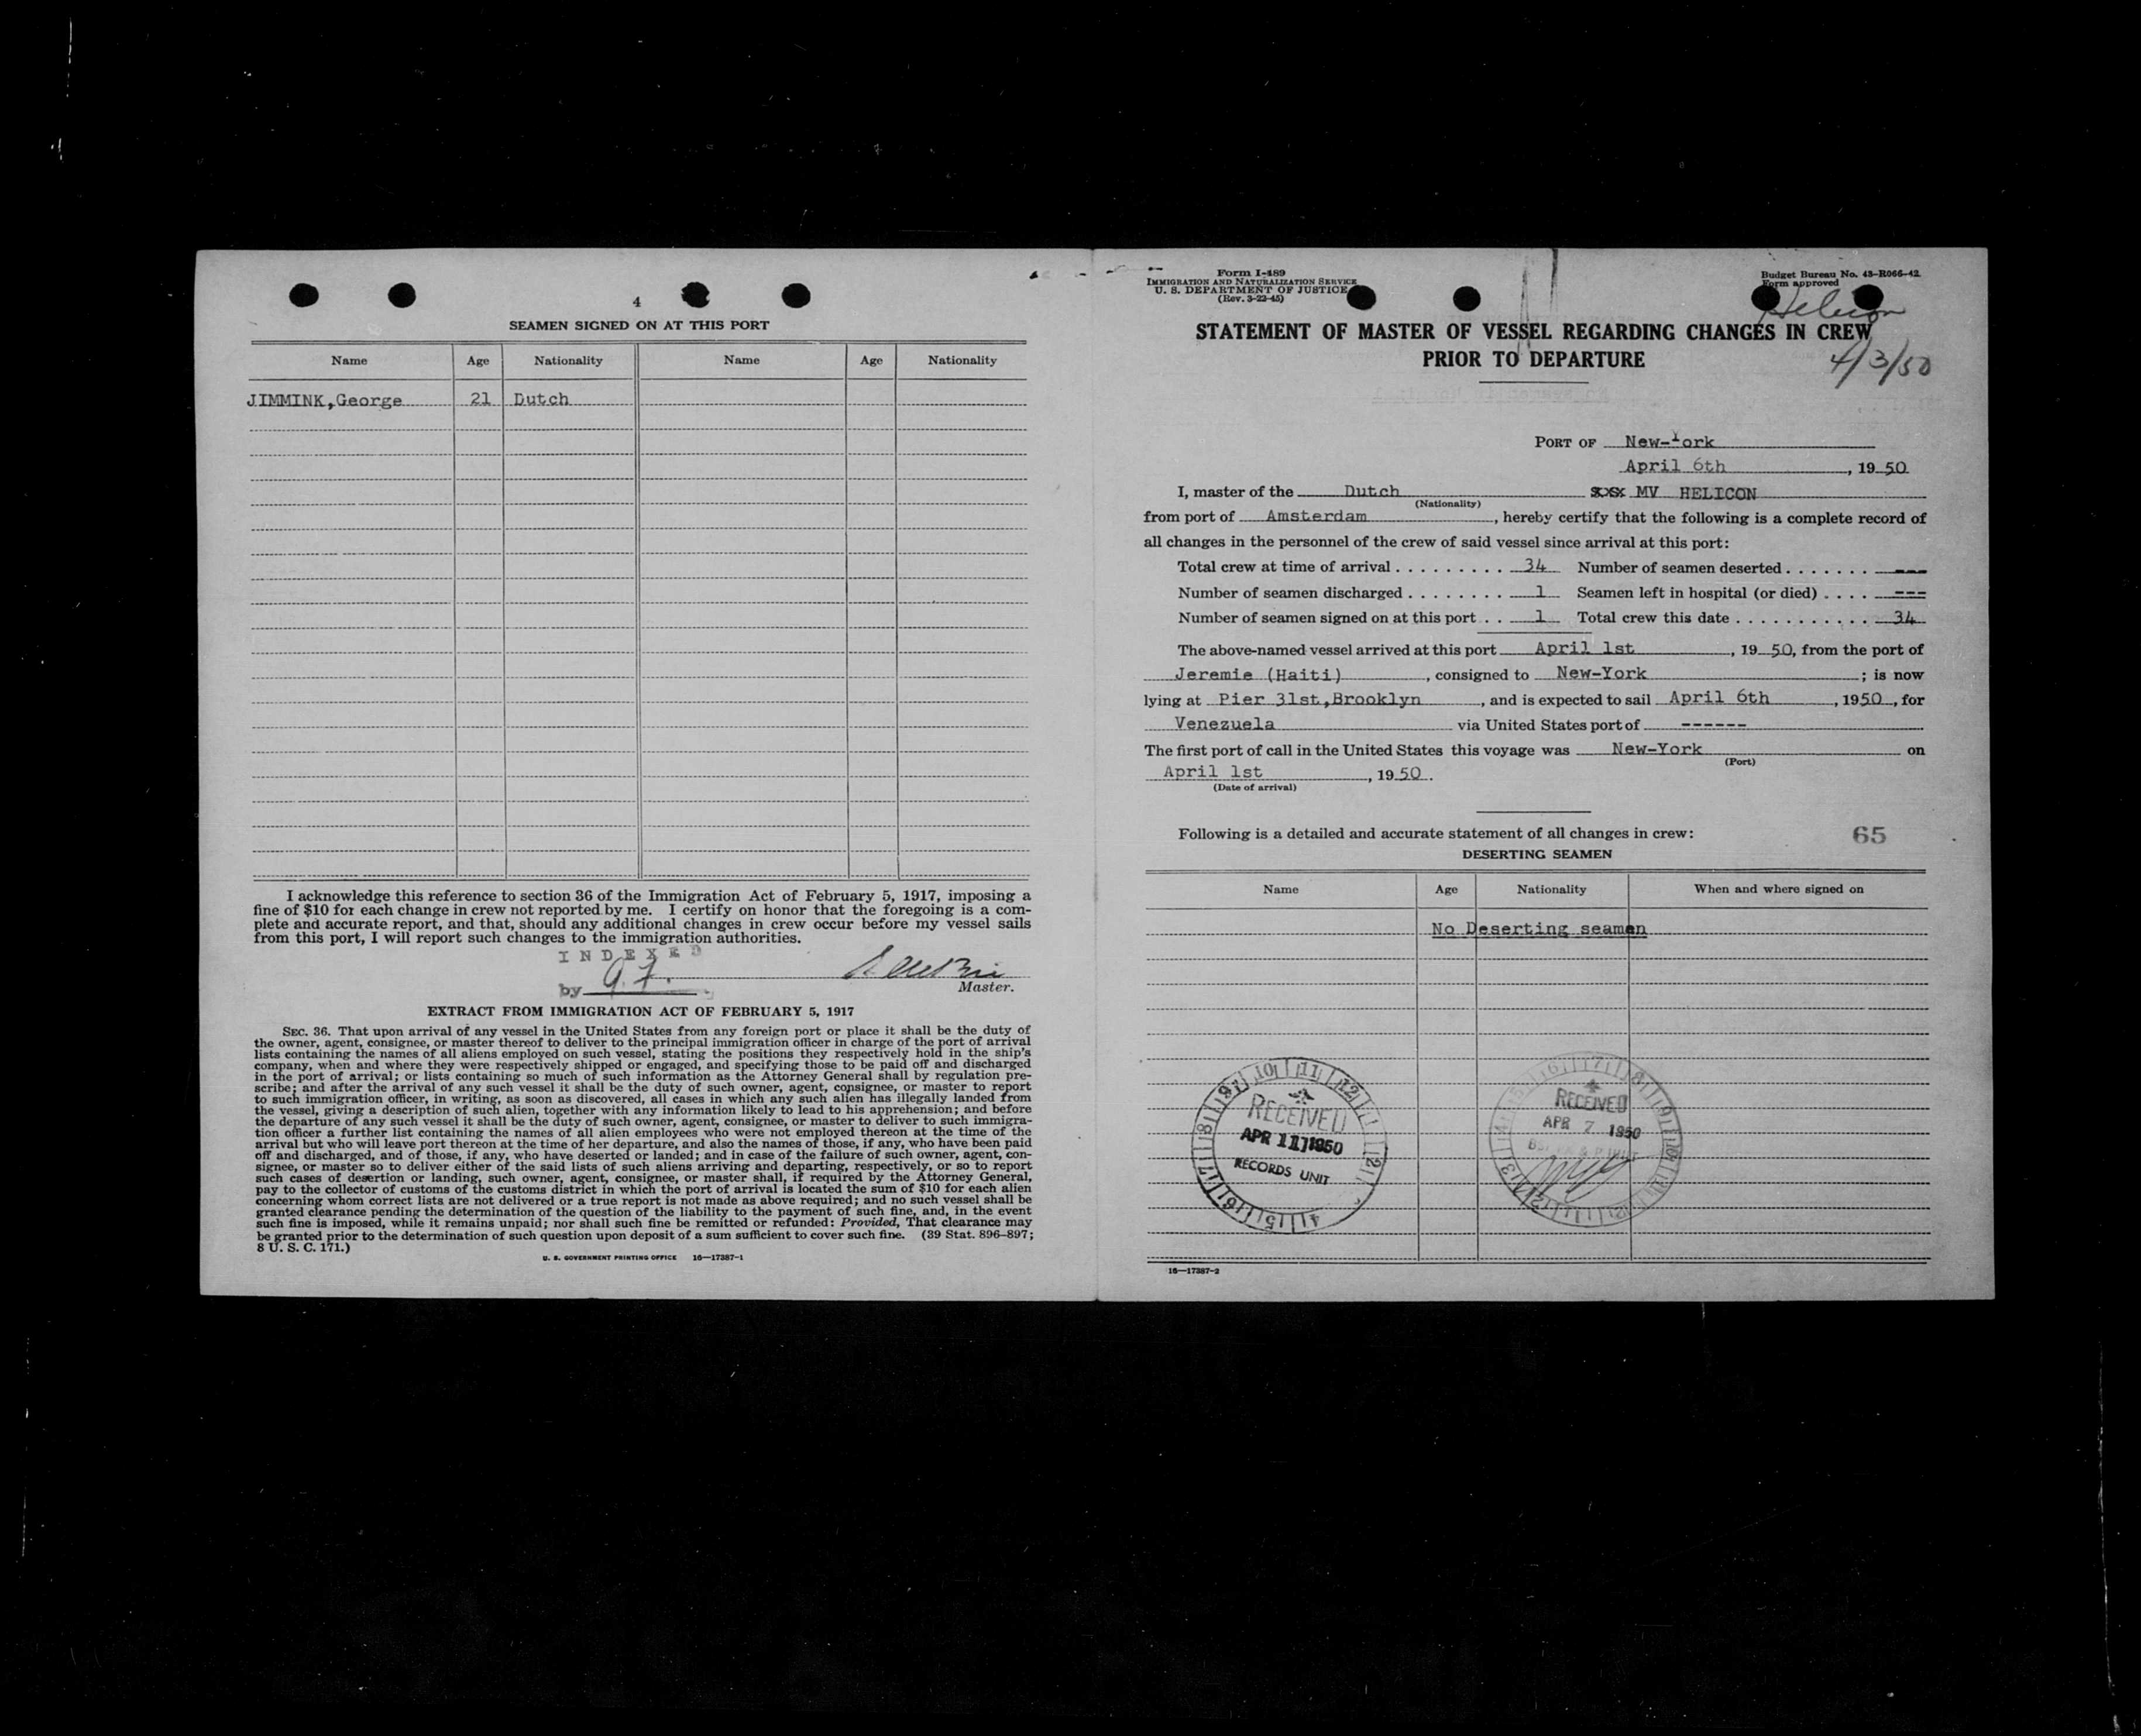 4
SEAMEN SIGNED ON AT THIS PORT
Name Age Nationality Name Age Nationality
JIMMINK,George 21 Dutch
I acknowledge this reference to section 36 of the Immigration Act of February 5, 1917, imposing a
fine of $10 for each change in crew not reported by me. I certify on honor that the foregoing is a com-
plete and accurate report, and that, should any additional changes in crew occur before my vessel sails
from this port, I will report such changes to the immigration authorities.
INDEXED
by
Master.
EXTRACT FROM IMMIGRATION ACT OF FEBRUARY 5, 1917
SEC. 36. That upon arrival of any vessel in the United States from any foreign port or place it shall be the duty of
the owner, agent, consignee, or master thereof to deliver to the principal immigration officer in charge of the port of arrival
lists containing the names of all aliens employed on such vessel, stating the positions they respectively hold in the ship's
company, when and where they were respectively shipped or engaged, and specifying those to be paid off and discharged
in the port of arrival; or lists containing so much of such information as the Attorney General shall by regulation pre-
scribe; and after the arrival of any such vessel it shall be the duty of such owner, agent, consignee, or master to report
to such immigration officer, in writing, as soon as discovered, all cases in which any such alien has illegally landed from
the vessel, giving a description of such alien, together with any information likely to lead to his apprehension; and before
the departure of any such vessel it shall be the duty of such owner, agent, consignee, or master to deliver to such immigra-
tion officer a further list containing the names of all alien employees who were not employed thereon at the time of the
arrival but who will leave port thereon at the time of her departure, and also the names of those, if any, who have been paid
off and discharged, and of those, if any, who have deserted or landed; and in case of the failure of such owner, agent, con-
signee, or master so to deliver either of the said lists of such aliens arriving and departing, respectively, or so to report
such cases of desertion or landing, such owner, agent, consignee, or master shall, if required by the Attorney General,
pay to the collector of customs of the customs district in which the port of arrival is located the sum of $10 for each alien
concerning whom correct lists are not delivered or a true report is not made as above required; and no such vessel shall be
granted clearance pending the determination of the question of the liability to the payment of such fine, and, in the event
such fine is imposed, while it remains unpaid; nor shall such fine be remitted or refunded: Provided, That clearance may
be granted prior to the determination of such question upon deposit of a sum sufficient to cover such fine. (39 Stat. 896-897;
8 U. S. C. 171.)
U. S. GOVERNMENT PRINTING OFFICE 16—17387-1
Form I-489
IMMIGRATION AND NATURALIZATION SERVICE
U. S. DEPARTMENT OF JUSTICE
(Rev. 3-22-45)
Budget Bureau No. 43-R066-42
Form approved
Helicon
STATEMENT OF MASTER OF VESSEL REGARDING CHANGES IN CREW
PRIOR TO DEPARTURE
4/3/50
PORT OF New-York
April 6th, 1950
I, master of the Dutch xxx MV HELICON
(Nationality)
from port of Amsterdam, hereby certify that the following is a complete record of
all changes in the personnel of the crew of said vessel since arrival at this port:
Total crew at time of arrival . . . . . . . . . 34 Number of seamen deserted . . . . . . . ---
Number of seamen discharged . . . . . . . . 1 Seamen left in hospital (or died) . . . . ---
Number of seamen signed on at this port . . 1 Total crew this date . . . . . . . . . . . 34
The above-named vessel arrived at this port April 1st, 1950, from the port of
Jeremie (Haiti), consigned to New-York; is now
lying at Pier 31st,Brooklyn, and is expected to sail April 6th, 1950, for
Venezuela via United States port of ------
The first port of call in the United States this voyage was New-York on
(Port)
April 1st, 1950.
(Date of arrival)
Following is a detailed and accurate statement of all changes in crew:
65
DESERTING SEAMEN
Name Age Nationality When and where signed on
No Deserting seamen
RECEIVED
APR 11 1950
RECORDS UNIT
RECEIVED
APR 7 1950
16—17387-2